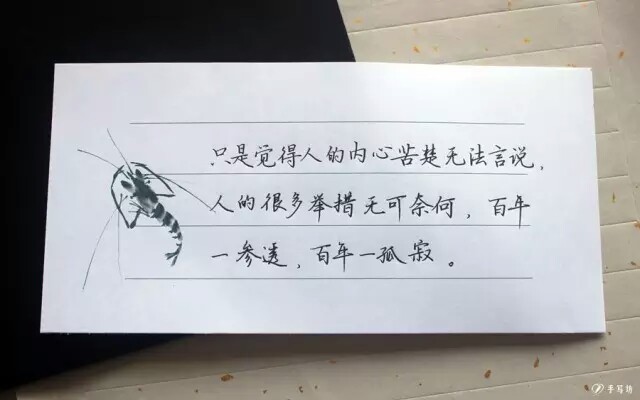 只是觉得人的内心苦楚无法言说,
人的很多举措无可奈何,百年
一参透,百年一孤寂。
手写坊